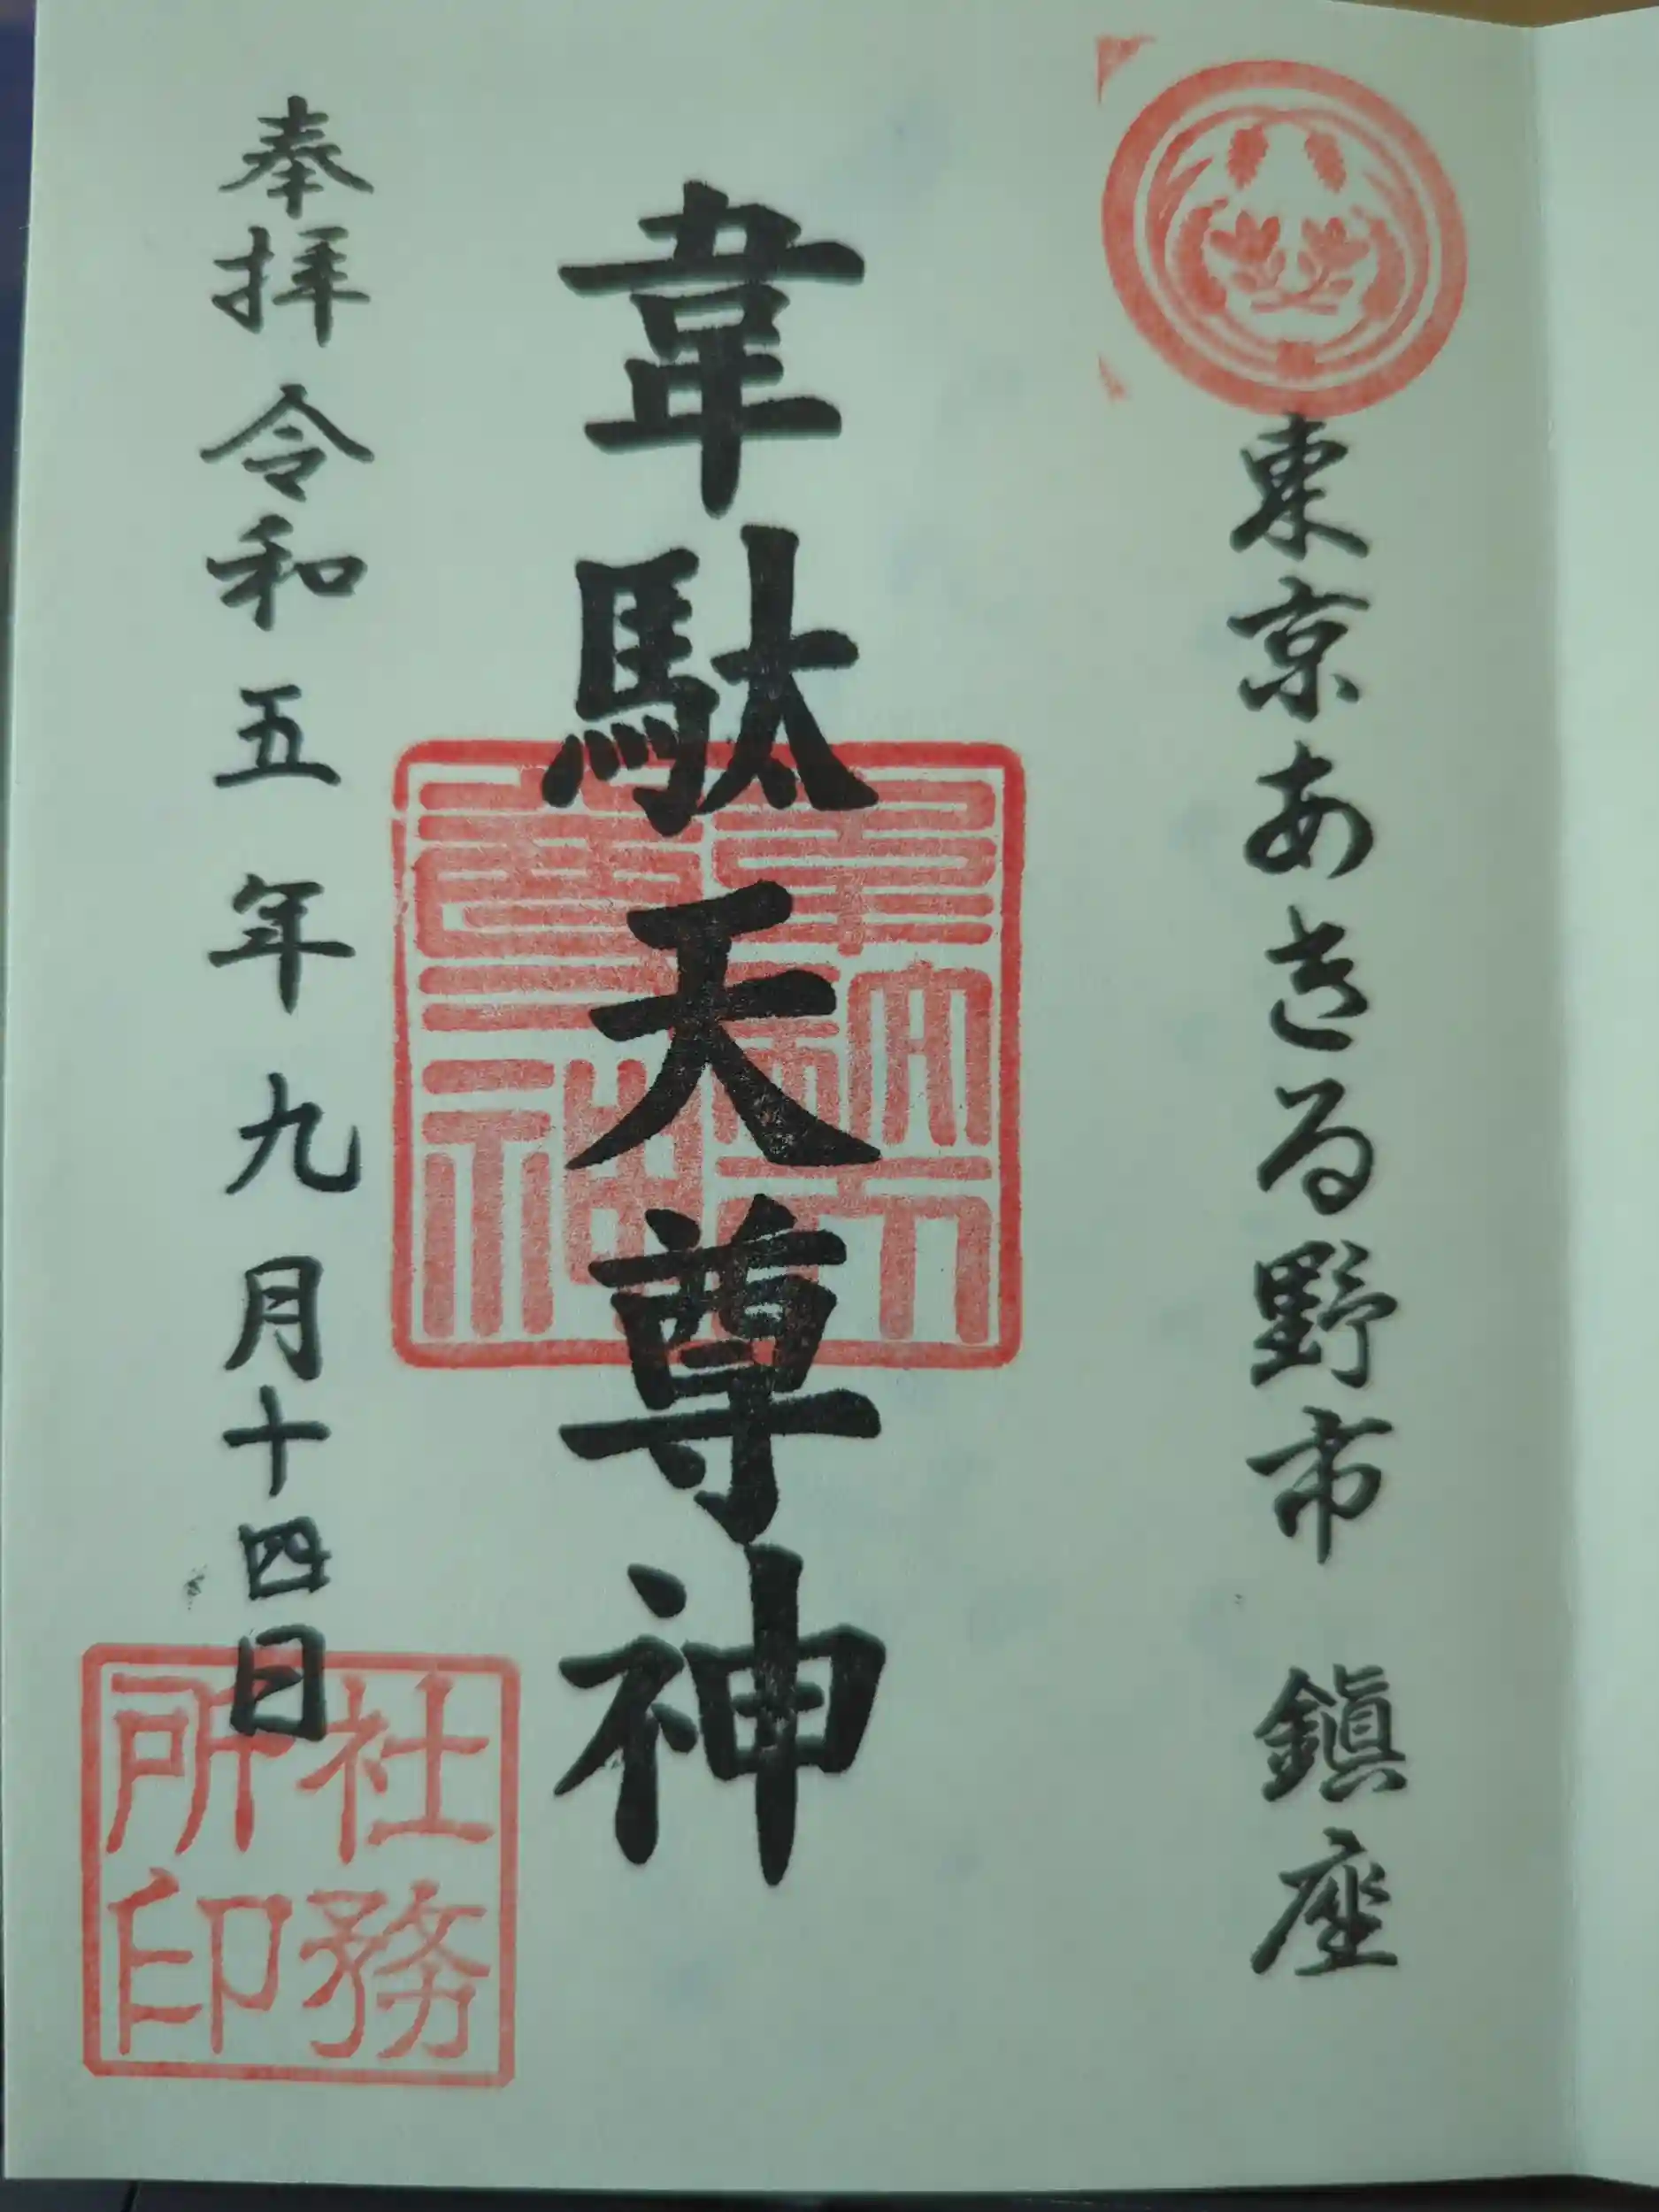 東京あきる野市 鎭座
韋駄天尊神
奉拝 令和五年九月十四日
社務
所印